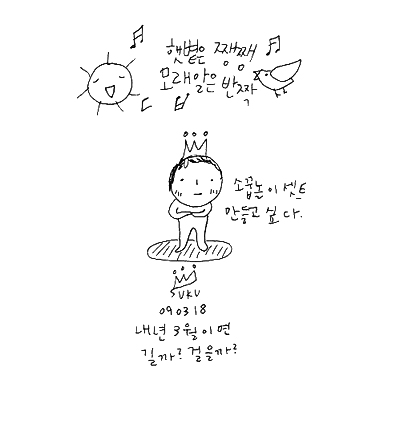 햇볕은 쨍쨍
모래알은 반짝
소꿉놀이 셋트
만들고 싶다.
SUKU
090318
내년 3월이면
길까? 걸을까?